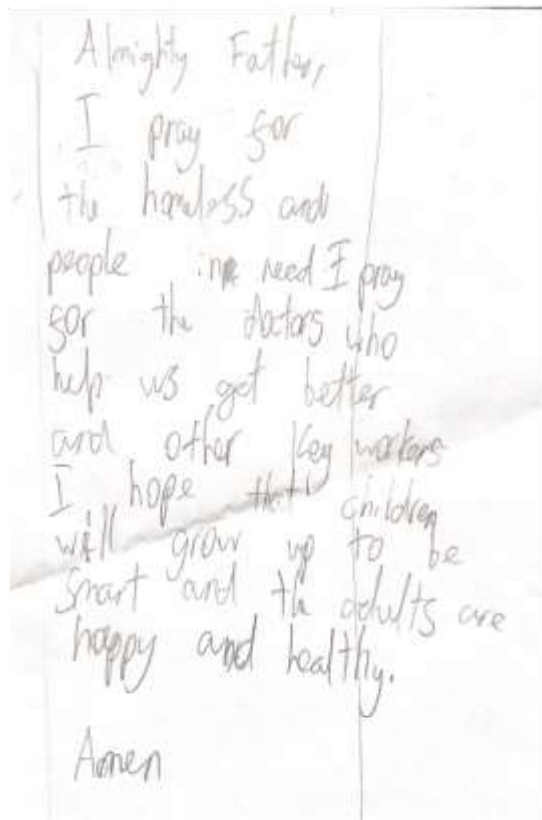 Almighty Father,
I pray for
the homeless and
people in need I pray
for the doctors who
help us get better
and other key workers
I hope that children
will grow up to be
smart and the adults are
happy and healthy.
Amen